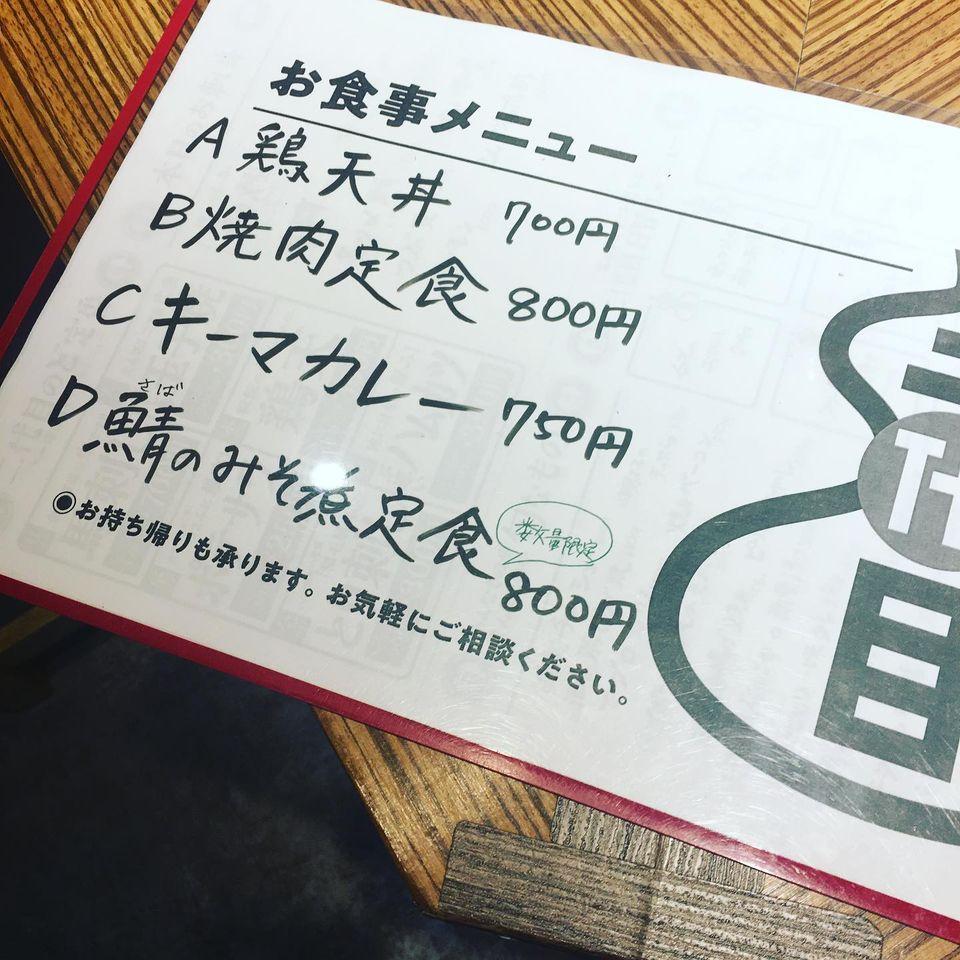 お食事メニュー
A 鶏天丼 700円
B 焼肉定食 800円
C キーマカレー 750円
さば
D 鯖のみそ煮定食 800円
数量限定
●お持ち帰りも承ります。お気軽にご相談ください。
目